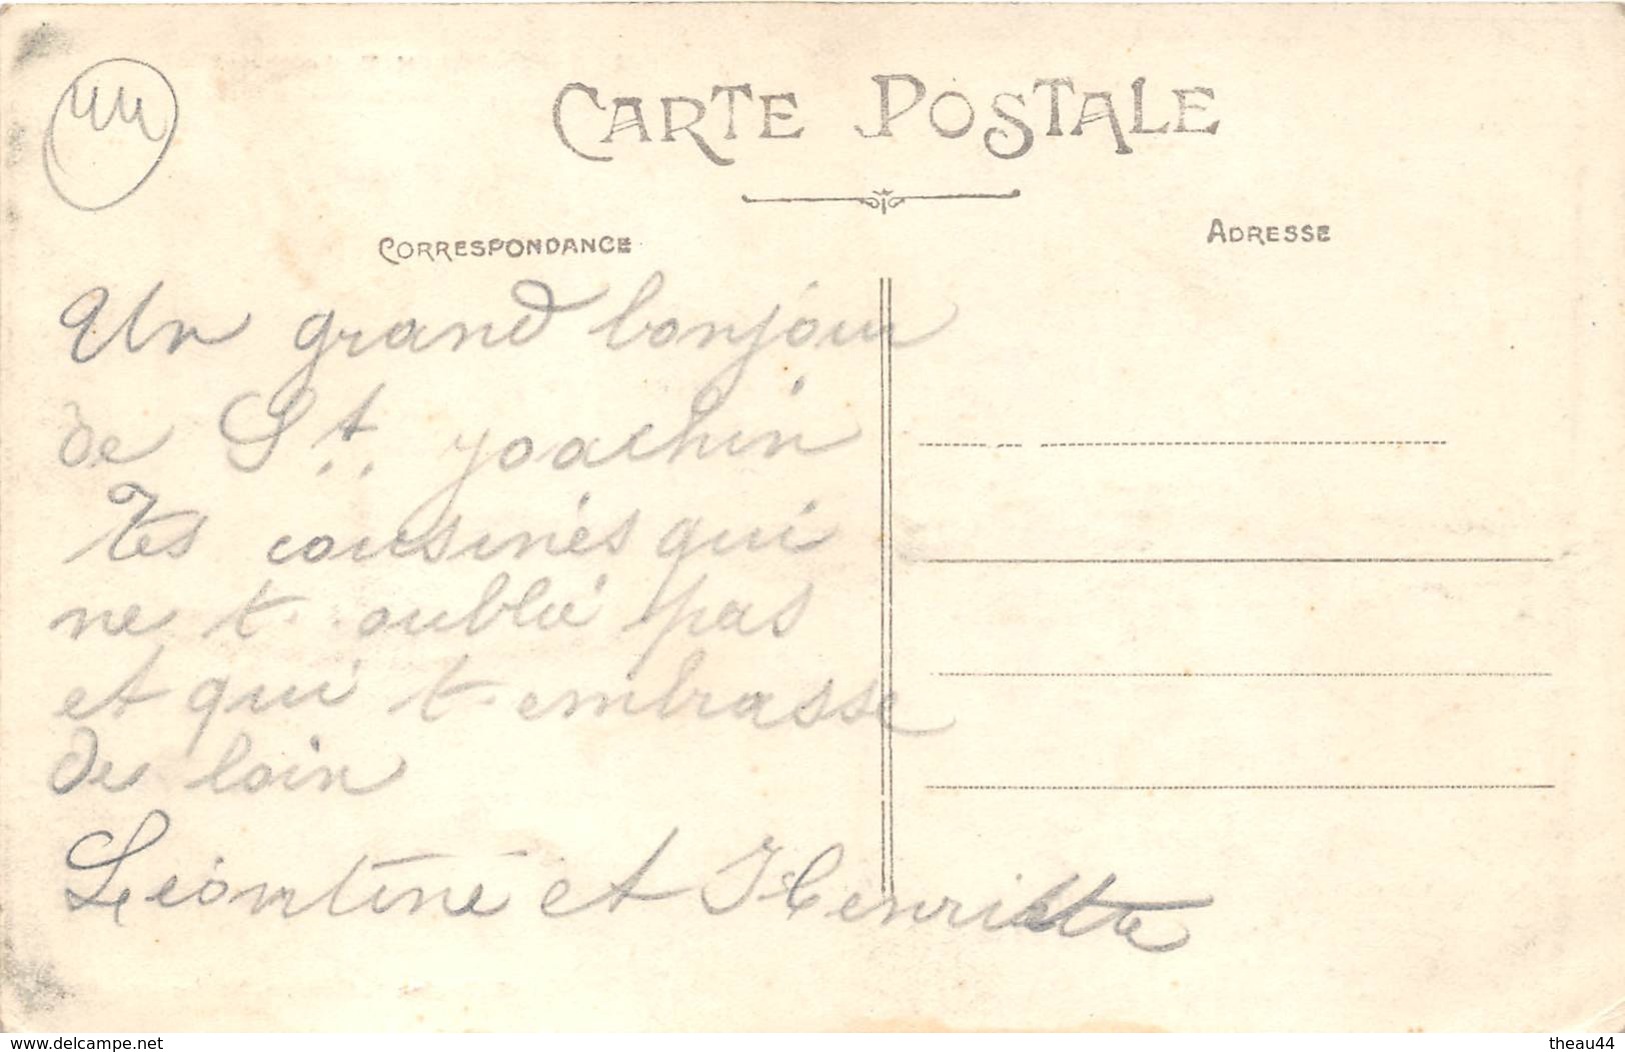 44
CARTE POSTALE
CORRESPONDANCE
ADRESSE
Un grand bonjour
de St. Joachin
Tes cousines qui
ne t. oublie pas
et qui t. embrasse
de loin
Léontine et Henriette
www.delcampe.net
theau44